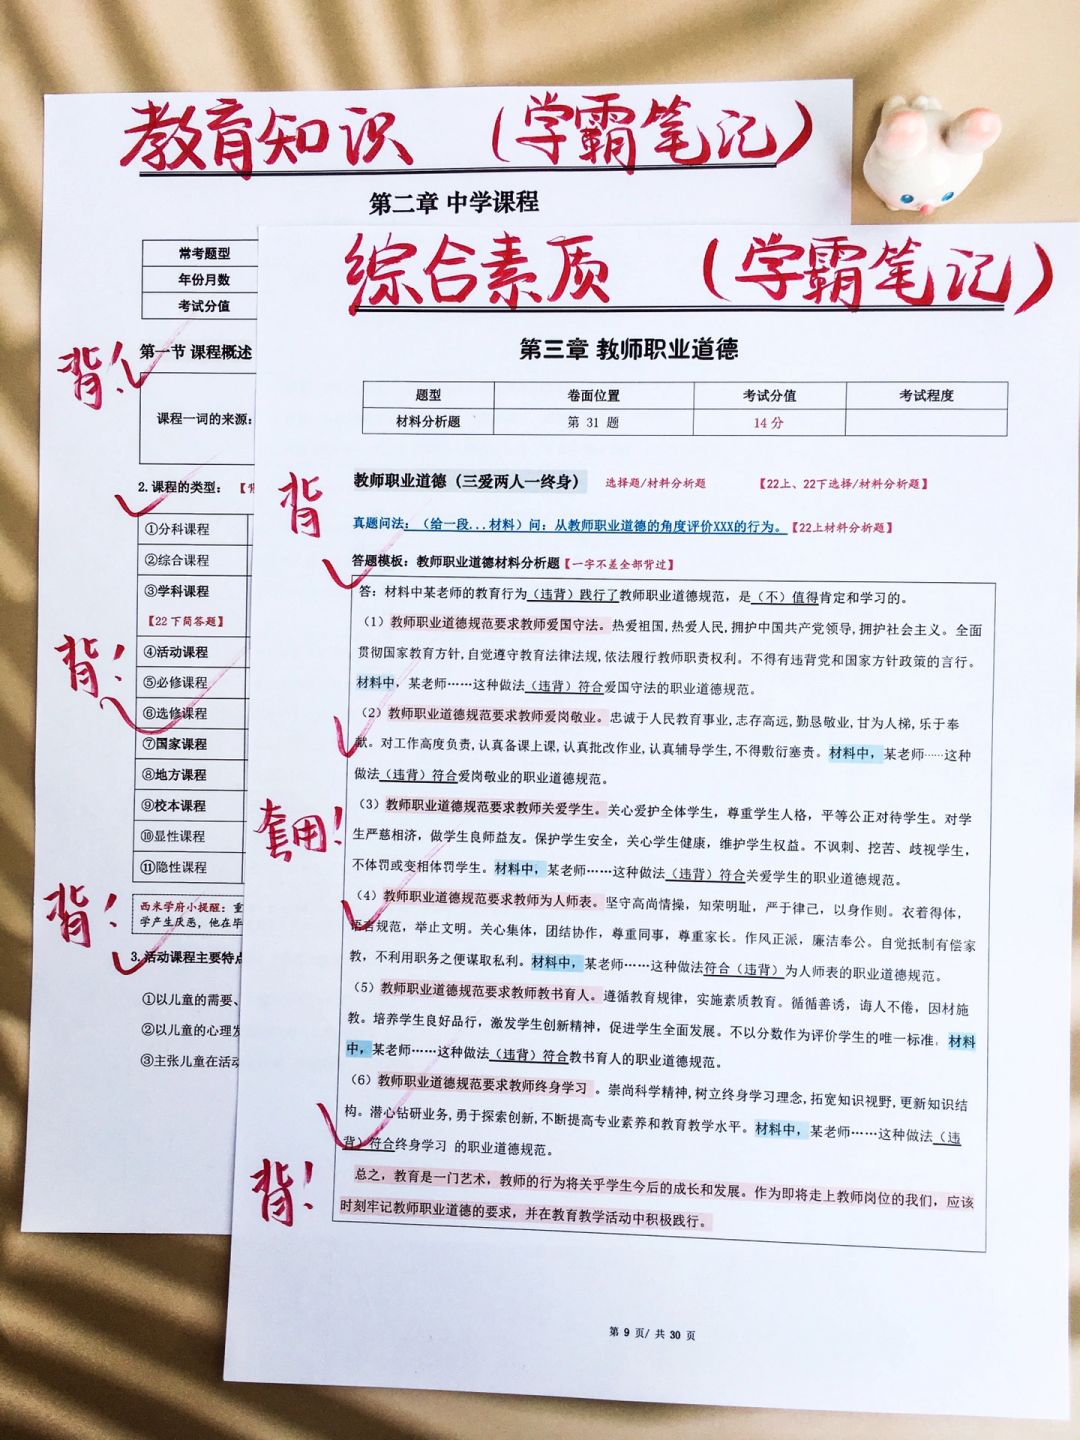 教育知识 (学霸笔记)
第二章 中学课程
常考题型
年份月数
考试分值
背!
第一节 课程概述
课程一词的来源:
2.课程的类型:
①分科课程
②综合课程
③学科课程
【22下简答题】
背!
④活动课程
⑤必修课程
⑥选修课程
⑦国家课程
⑧地方课程
⑨校本课程
⑩显性课程
⑪隐性课程
背!
西米学府小提醒:重
学产生厌恶,他在毕
3.活动课程主要特点
①以儿童的需要、
②以儿童的心理发
③主张儿童在活动
综合素质 (学霸笔记)
第三章 教师职业道德
题型 卷面位置 考试分值 考试程度
材料分析题 第 31 题 14分
背
教师职业道德(三爱两人一终身) 选择题/材料分析题 【22上、22下选择/材料分析题】
真题问法:(给一段...材料)问:从教师职业道德的角度评价XXX的行为。【22上材料分析题】
答题模板:教师职业道德材料分析题【一字不差全部背过】
答:材料中某老师的教育行为(违背)践行了教师职业道德规范,是(不)值得肯定和学习的。
(1)教师职业道德规范要求教师爱国守法。热爱祖国,热爱人民,拥护中国共产党领导,拥护社会主义。全面
贯彻国家教育方针,自觉遵守教育法律法规,依法履行教师职责权利。不得有违背党和国家方针政策的言行。
材料中,某老师……这种做法(违背)符合爱国守法的职业道德规范。
(2)教师职业道德规范要求教师爱岗敬业。忠诚于人民教育事业,志存高远,勤恳敬业,甘为人梯,乐于奉
献。对工作高度负责,认真备课上课,认真批改作业,认真辅导学生,不得敷衍塞责。材料中,某老师……这种
做法(违背)符合爱岗敬业的职业道德规范。
套用!
(3)教师职业道德规范要求教师关爱学生。关心爱护全体学生,尊重学生人格,平等公正对待学生。对学
生严慈相济,做学生良师益友。保护学生安全,关心学生健康,维护学生权益。不讽刺、挖苦、歧视学生,
不体罚或变相体罚学生。材料中,某老师……这种做法(违背)符合关爱学生的职业道德规范。
(4)教师职业道德规范要求教师为人师表。坚守高尚情操,知荣明耻,严于律己,以身作则。衣着得体,
语言规范,举止文明。关心集体,团结协作,尊重同事,尊重家长。作风正派,廉洁奉公。自觉抵制有偿家
教,不利用职务之便谋取私利。材料中,某老师……这种做法符合(违背)为人师表的职业道德规范。
(5)教师职业道德规范要求教师教书育人。遵循教育规律,实施素质教育。循循善诱,诲人不倦,因材施
教。培养学生良好品行,激发学生创新精神,促进学生全面发展。不以分数作为评价学生的唯一标准。材料
中,某老师……这种做法(违背)符合教书育人的职业道德规范。
(6)教师职业道德规范要求教师终身学习 。崇尚科学精神,树立终身学习理念,拓宽知识视野,更新知识结
构。潜心钻研业务,勇于探索创新,不断提高专业素养和教育教学水平。材料中,某老师……这种做法(违
背)符合终身学习 的职业道德规范。
背!
总之,教育是一门艺术,教师的行为将关乎学生今后的成长和发展。作为即将走上教师岗位的我们,应该
时刻牢记教师职业道德的要求,并在教育教学活动中积极践行。
第 9 页/ 共 30 页